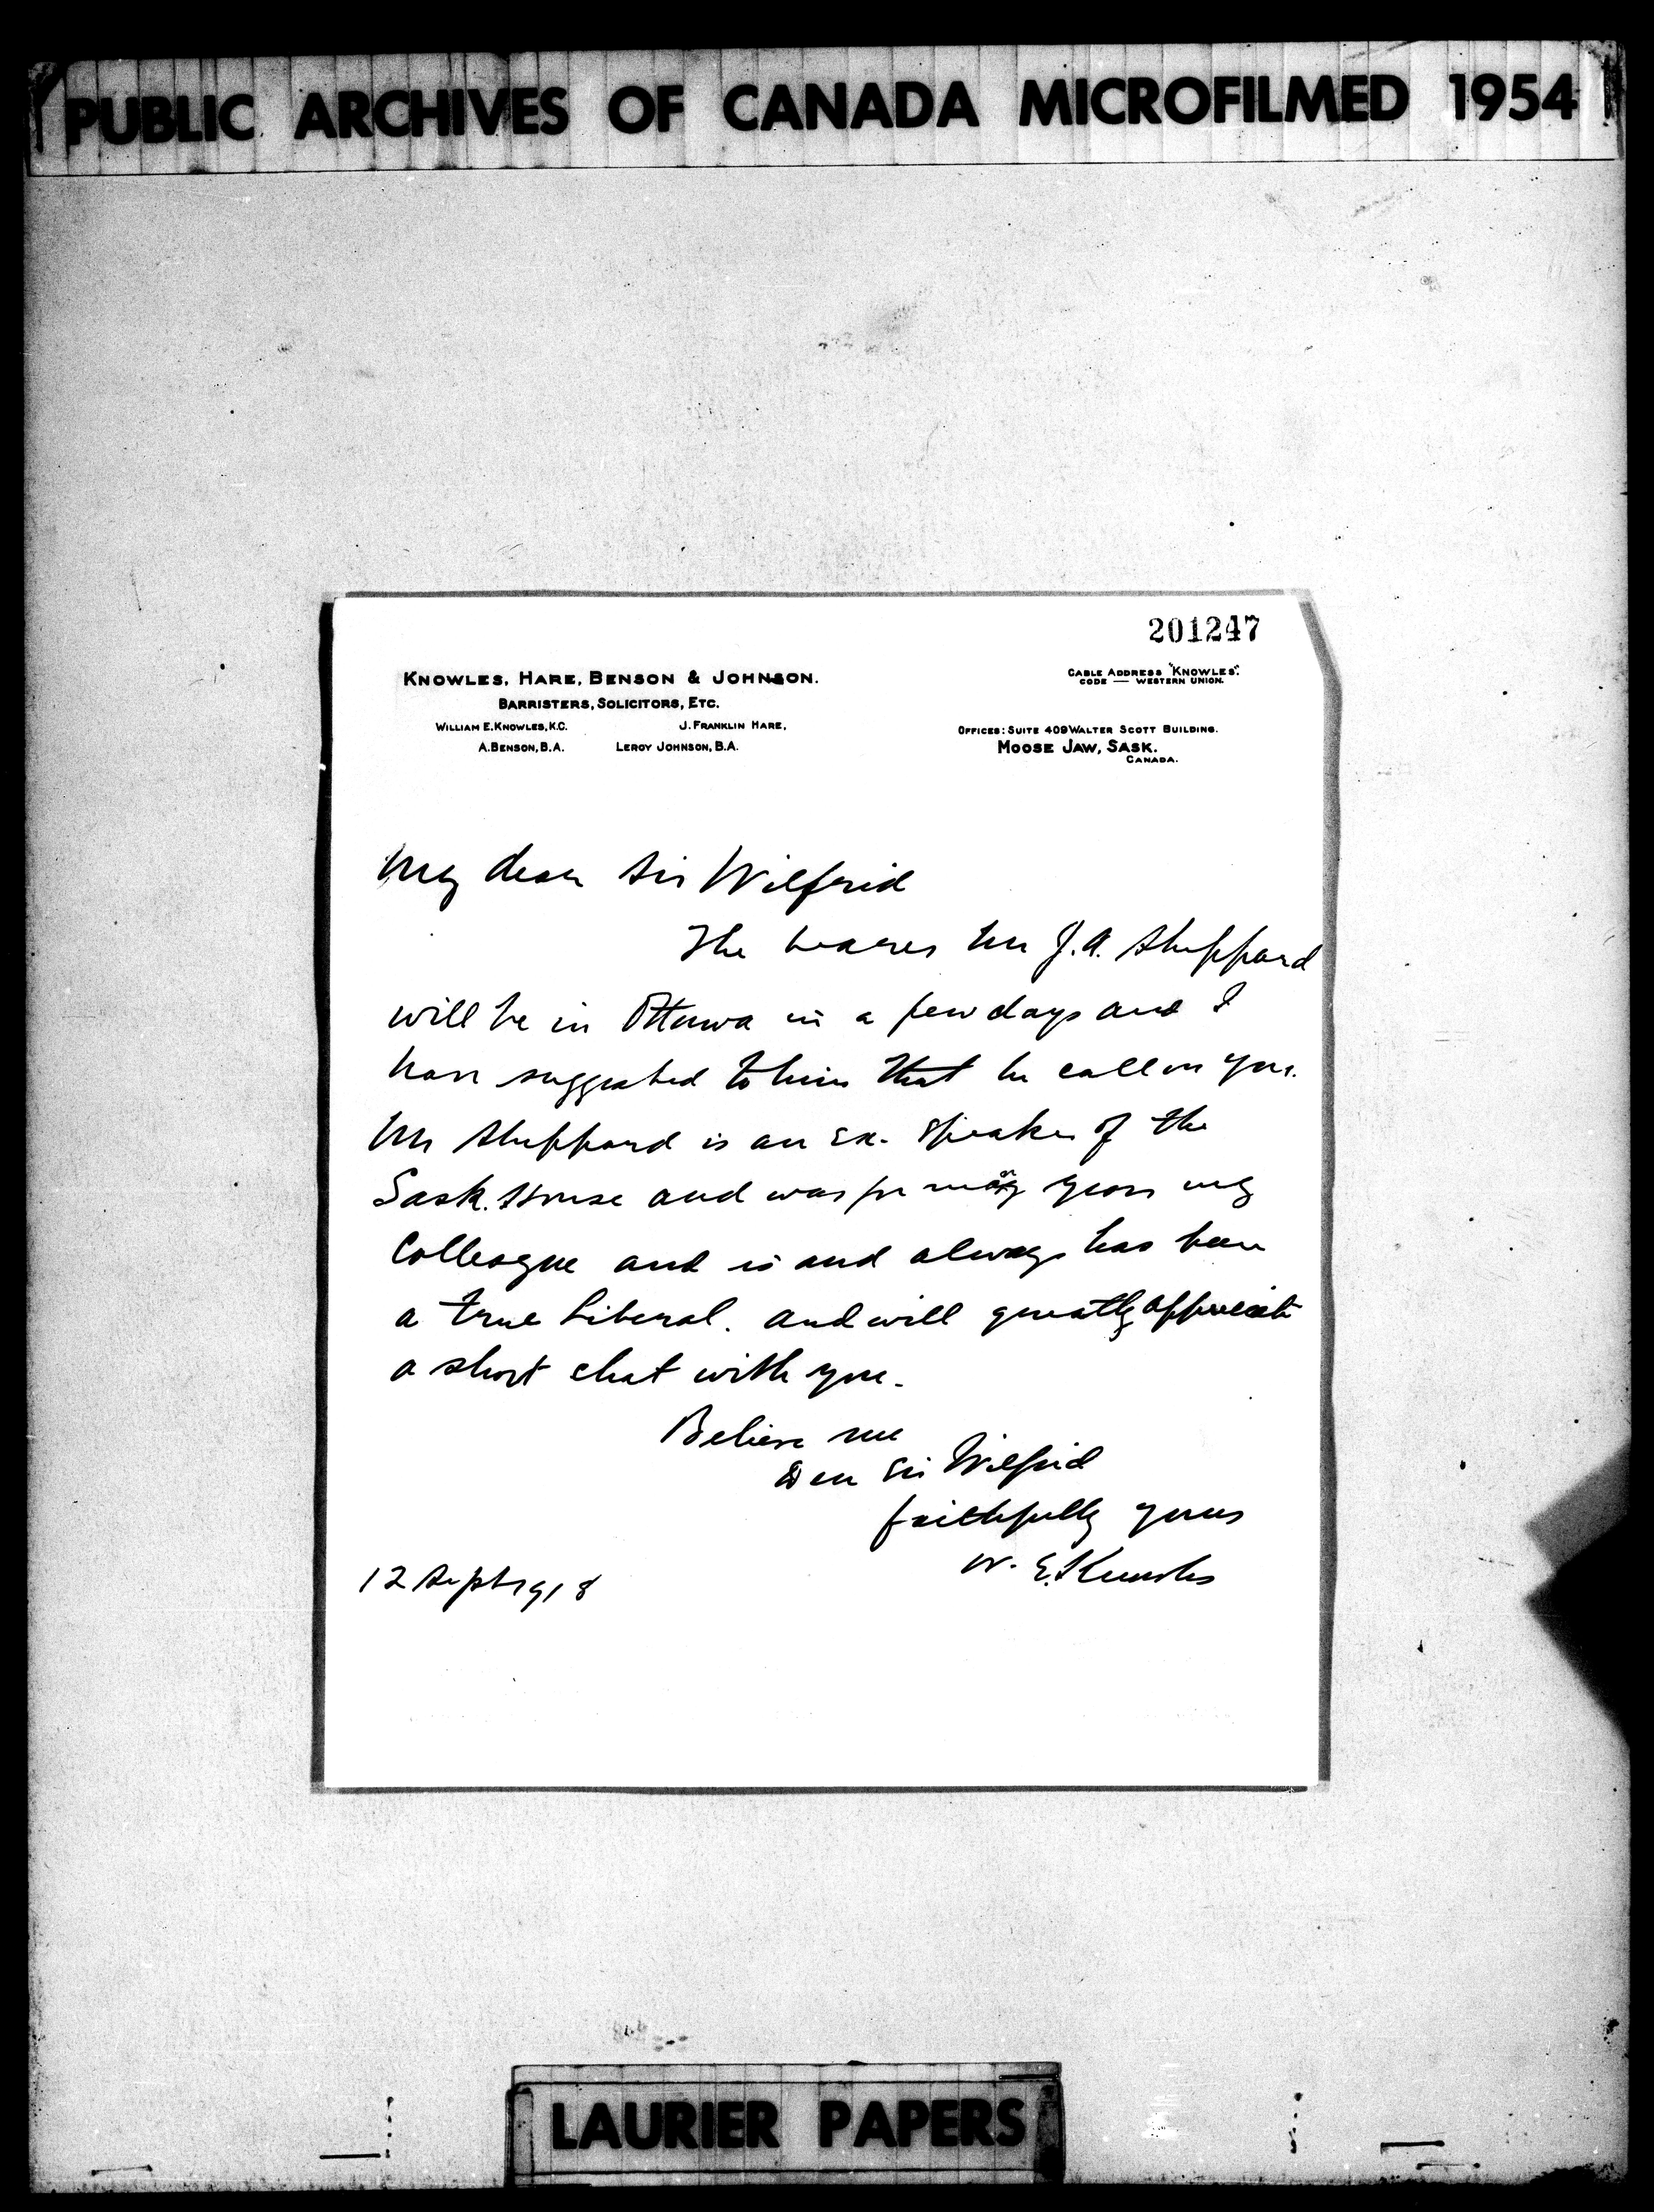 PUBLIC ARCHIVES OF CANADA MICROFILMED 1954
201247
KNOWLES, HARE, BENSON & JOHNSON.
BARRISTERS, SOLICITORS, ETC.
WILLIAM E. KNOWLES, K.C. J. FRANKLIN HARE,
A. BENSON, B.A. LEROY JOHNSON, B.A.
CABLE ADDRESS "KNOWLES".
CODE — WESTERN UNION.
OFFICES: SUITE 409 WALTER SCOTT BUILDING.
MOOSE JAW, SASK.
CANADA.
My dear Sir Wilfrid
The bearer Mr J.A. Sheppard
will be in Ottawa in a few days and I
have suggested to him that he call on you.
Mr Sheppard is an Ex. Speaker of the
Sask. House and was for many years my
Colleague and is and always has been
a true Liberal. and will greatly appreciate
a short chat with you.
Believe me
Dear Sir Wilfrid
faithfully yours
W. E. Knowles
12 Sept 1918
LAURIER PAPERS